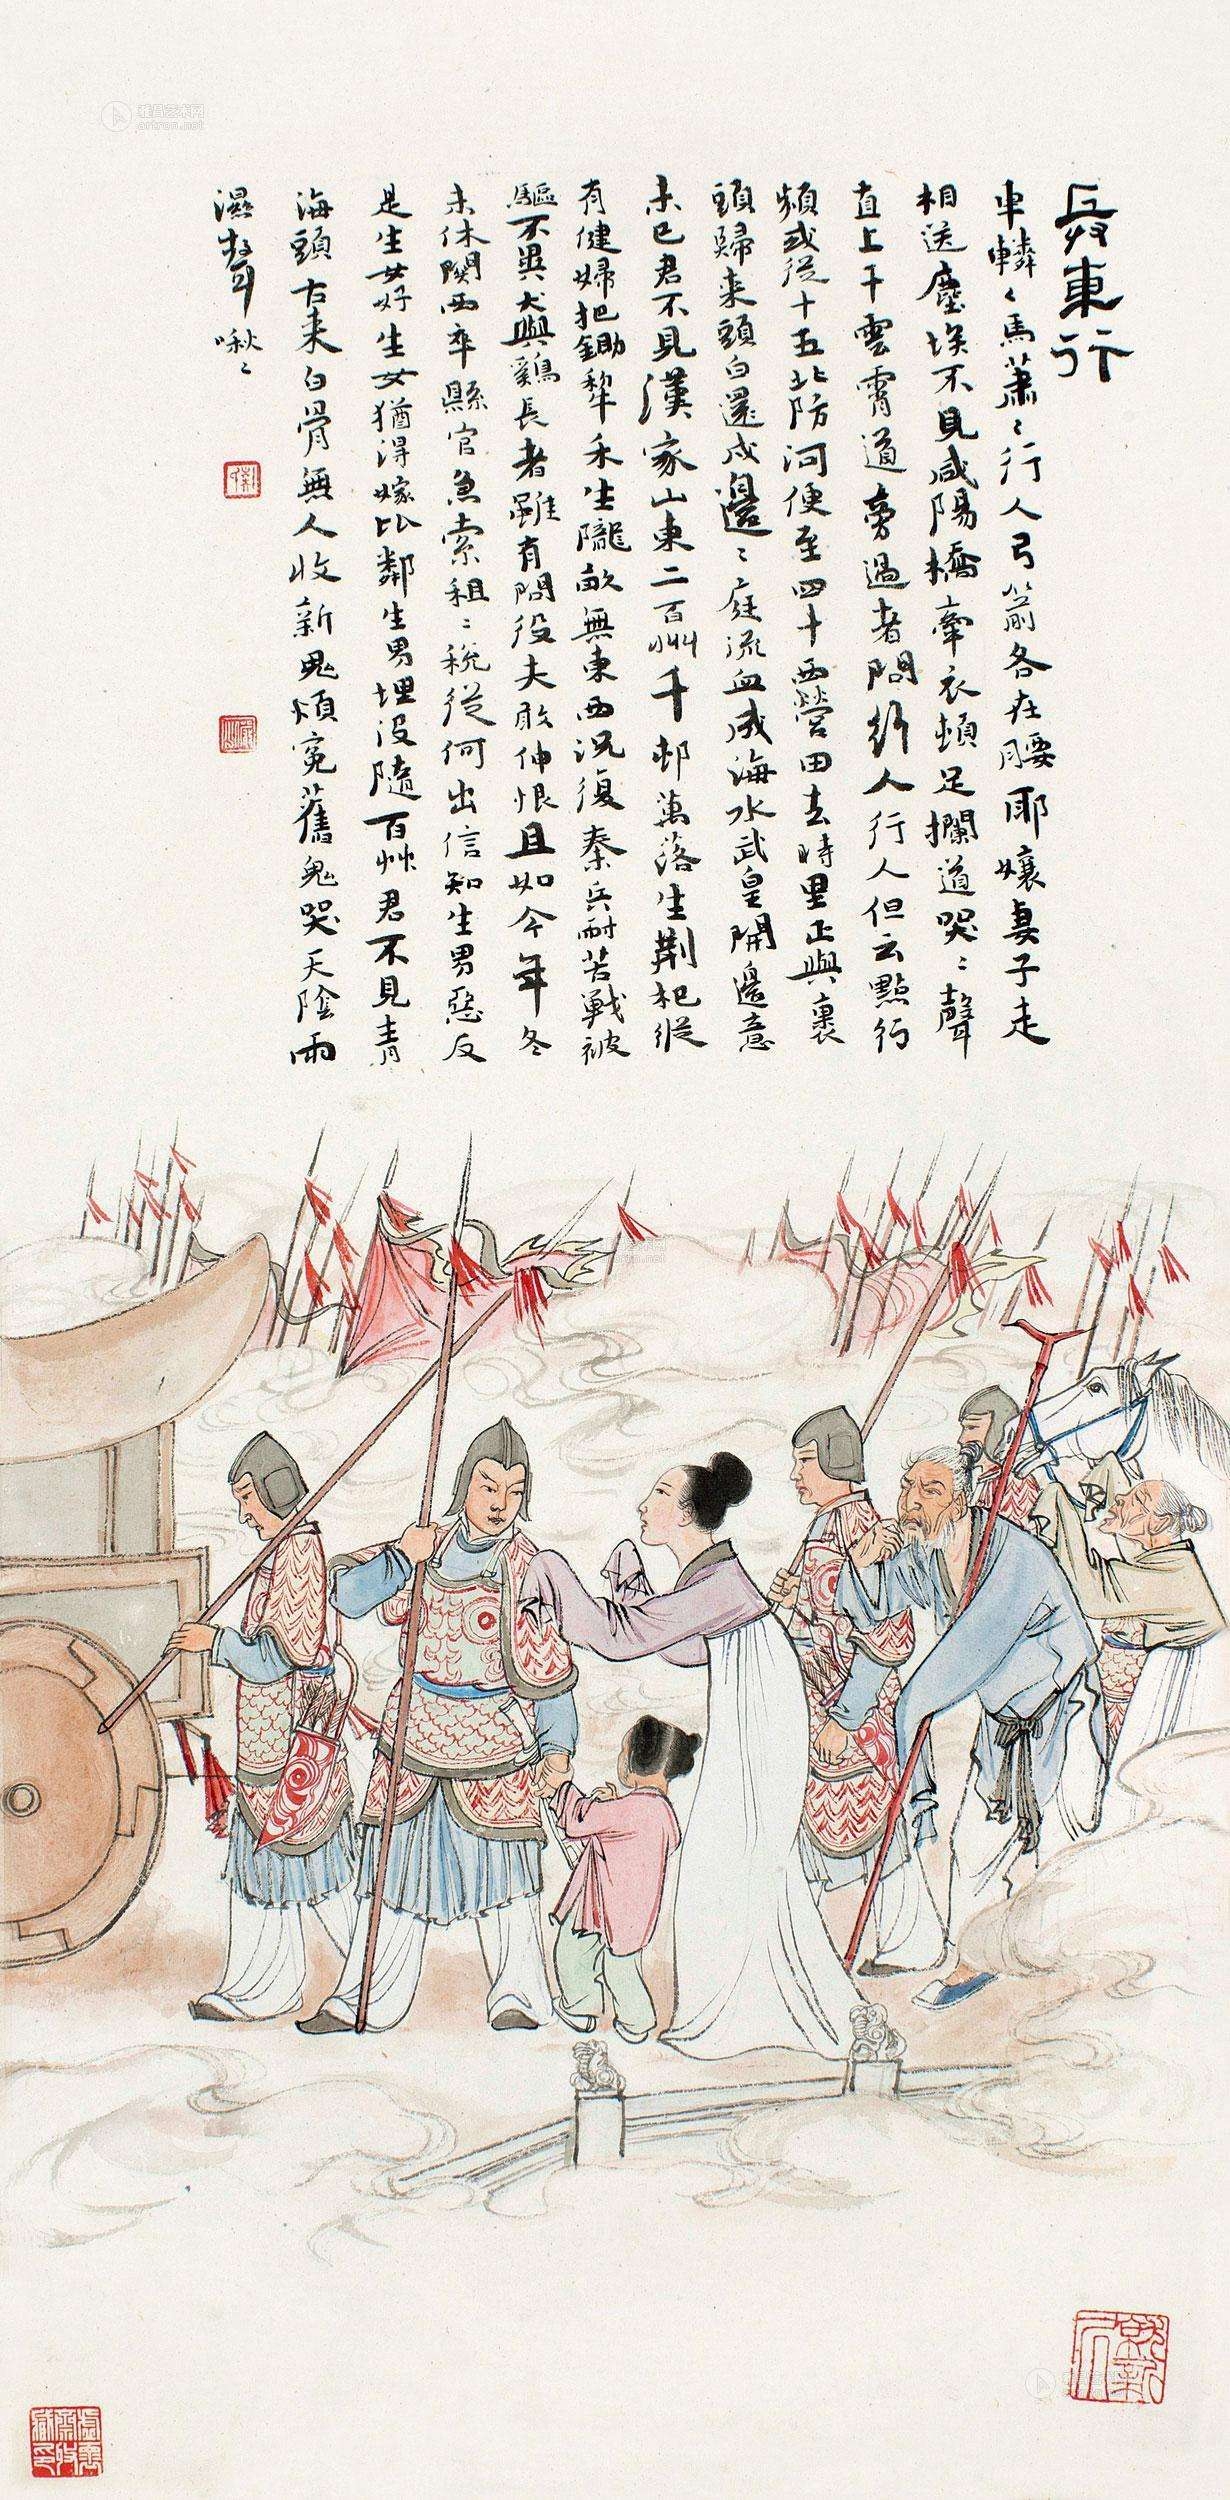 兵車行
車轔〻馬蕭〻行人弓箭各在腰耶孃妻子走
相送塵埃不見咸陽橋牽衣頓足攔道哭〻聲
直上干雲霄道旁過者問行人行人但云點行
頻或從十五北防河便至四十西營田去時里正與裹
頭歸來頭白還戍邊〻庭流血成海水武皇開邊意
未已君不見漢家山東二百州千邨萬落生荊杞縱
有健婦把鋤犁禾生隴畝無東西況復秦兵耐苦戰被
驅不異犬與鷄長者雖有問役夫敢伸恨且如今年冬
未休關西卒縣官急索租〻稅從何出信知生男惡反
是生女好生女猶得嫁比鄰生男埋沒隨百艸君不見青
海頭古來白骨無人收新鬼煩冤舊鬼哭天陰雨
濕聲啾〻
雅昌艺术网
artron.net